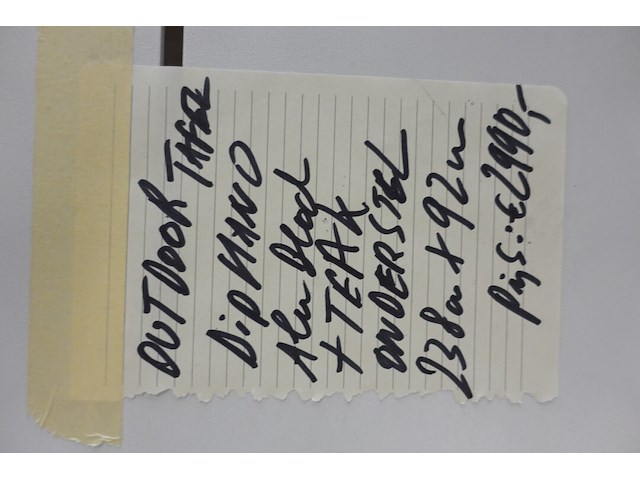 OUTDOOR TAFEL
DiPHANO
Alu Blad
+ TEAK
ONDERSTEL
238cm x 92cm
Prijs: € 2990,-